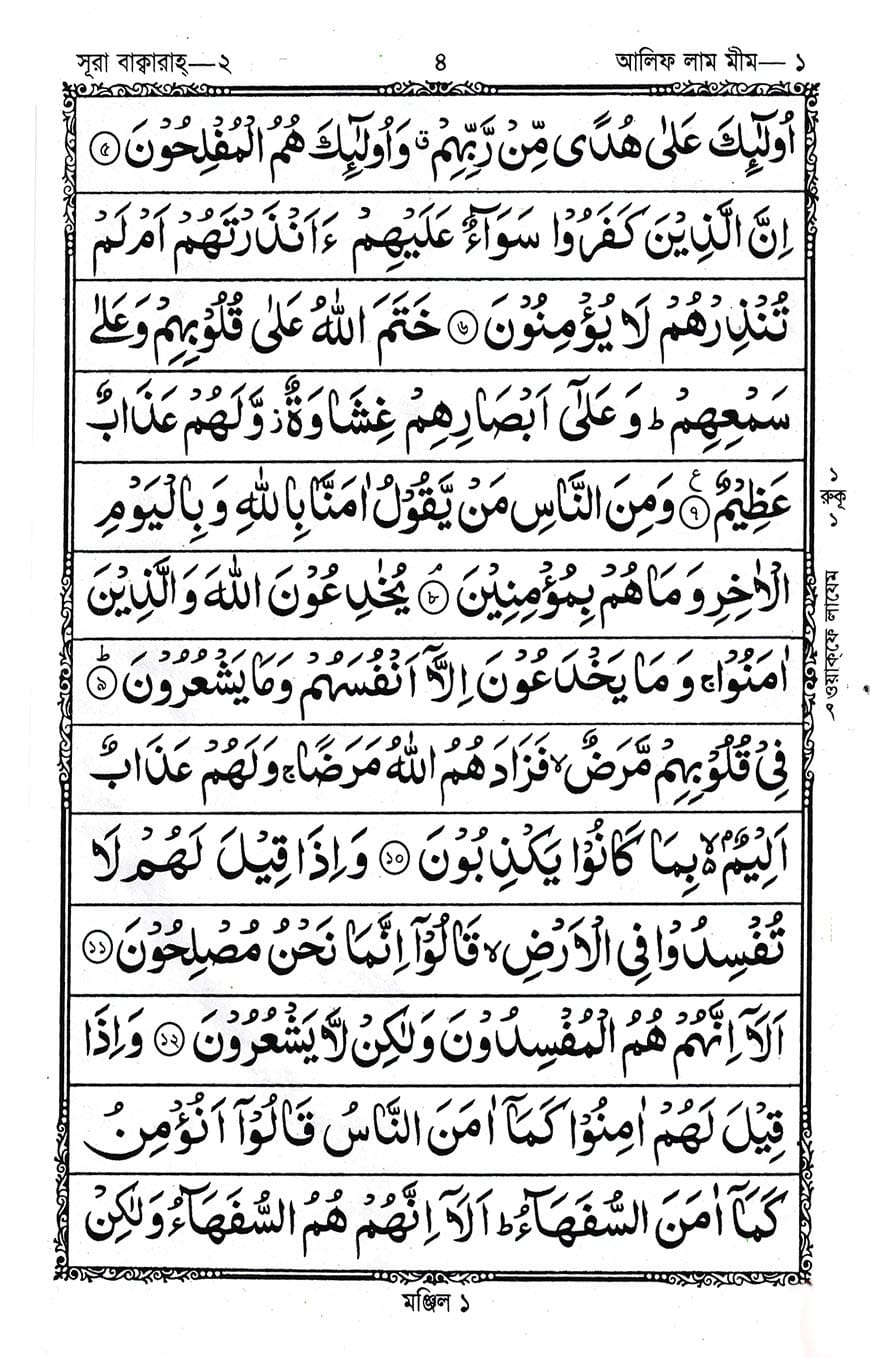 সূরা বাক্বারাহ্—২ ৪ আলিফ লাম মীম— ১
اُولٰٓئِكَ عَلٰى هُدًى مِّنْ رَّبِّهِمْ ۙ وَاُولٰٓئِكَ هُمُ الْمُفْلِحُوْنَ ৫
اِنَّ الَّذِيْنَ كَفَرُوْا سَوَآءٌ عَلَيْهِمْ ءَاَنْذَرْتَهُمْ اَمْ لَمْ
تُنْذِرْهُمْ لَا يُؤْمِنُوْنَ ৬ خَتَمَ اللّٰهُ عَلٰى قُلُوْبِهِمْ وَعَلٰى
سَمْعِهِمْ ؕ وَ عَلٰٓى اَبْصَارِهِمْ غِشَاوَةٌ ز وَّلَهُمْ عَذَابٌ
عَظِيْمٌ ৭ ع وَمِنَ النَّاسِ مَنْ يَّقُوْلُ اٰمَنَّا بِاللّٰهِ وَ بِالْيَوْمِ
الْاٰخِرِ وَ مَا هُمْ بِمُؤْمِنِيْنَ ৮ ۘ يُخٰدِعُوْنَ اللّٰهَ وَ الَّذِيْنَ
اٰمَنُوْا ۚ وَ مَا يَخْدَعُوْنَ اِلَّآ اَنْفُسَهُمْ وَمَا يَشْعُرُوْنَ ৯ ؕ
فِىْ قُلُوْبِهِمْ مَّرَضٌ ۙ فَزَادَ هُمُ اللّٰهُ مَرَضًا ۚ وَلَهُمْ عَذَابٌ
اَلِيْمٌۢ ۙ بِمَا كَانُوْا يَكْذِبُوْنَ ১০ وَاِذَا قِيْلَ لَهُمْ لَا
تُفْسِدُوْا فِى الْاَرْضِ ۙ قَالُوْٓا اِنَّمَا نَحْنُ مُصْلِحُوْنَ ১১
اَلَآ اِنَّهُمْ هُمُ الْمُفْسِدُوْنَ وَلٰكِنْ لَّا يَشْعُرُوْنَ ১২ وَاِذَا
قِيْلَ لَهُمْ اٰمِنُوْا كَمَآ اٰمَنَ النَّاسُ قَالُوْٓا اَنُؤْمِنُ
كَمَآ اٰمَنَ السُّفَهَآءُ ؕ اَلَآ اِنَّهُمْ هُمُ السُّفَهَآءُ وَلٰكِنْ
১
রুকূ
১
ওয়াক্‌ফে লাযেম
মঞ্জিল ১